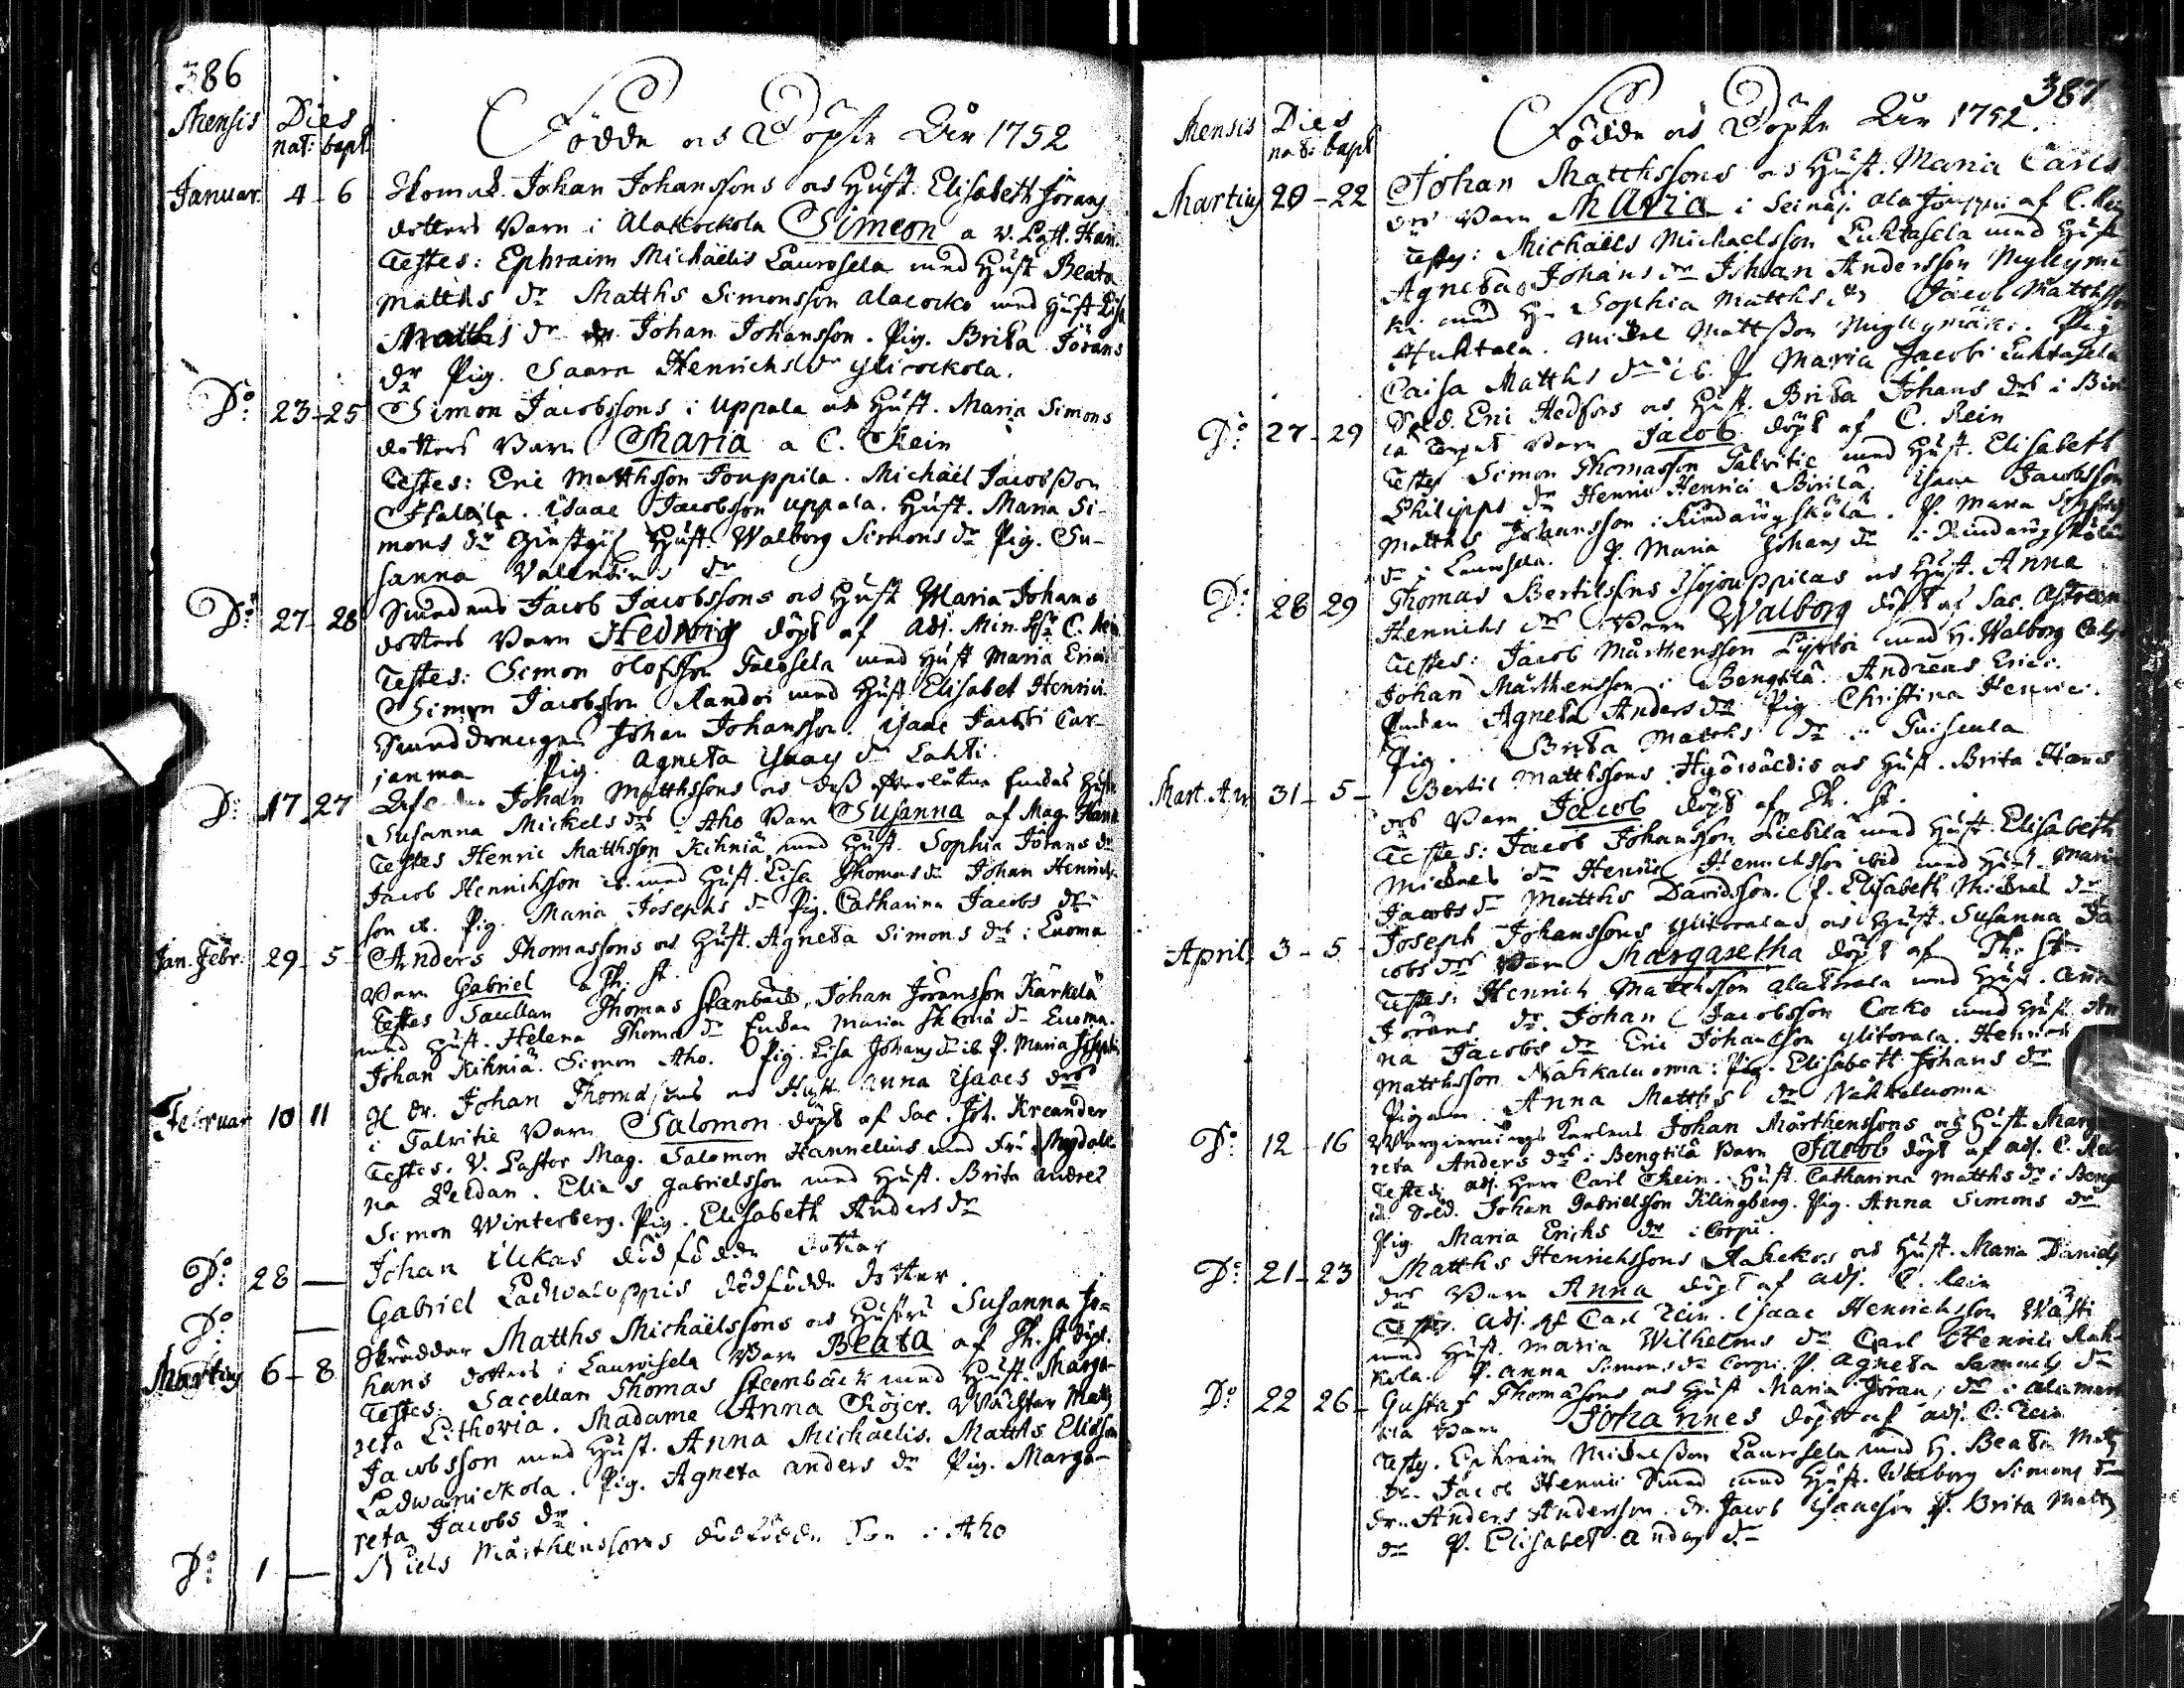 386
Mensis Dies
nat: bapt.
Födde och Döpte Åhr 1752
Januar. 4 - 6 Skomak. Johan Johanssons och Hust. Elisabeth Jörans
dotters Barn i Alacockola Simeon a V. Past. Han.
Testes: Ephraim Michaëlis Laurosela med Hust Beata
Matths dr Matths Simonsson Alacocko med Hust Lisa
Matths dr dr. Johan Johansson. Pig. Brita Jörans
dr Pig. Saara Henrichs dr Ylicockola.
Do: 23 - 25 Simon Jacobssons i Uppala och Hust. Maria Simons
dotters Barn Maria a C. Rein
Testes: Eric Matthsson Jouppila. Michaël Jacobsson
Isaac Jacobsson Uppala. Hust. Maria Si-
mons dr Hust. Walborg Simons dr Pig. Su-
sanna Valentins dr
Do: 27 - 28 Smedens Jacob Jacobssons och Hust Maria Johans
dotters Barn Hedwig döpt af Adj. Min. C. Rein
Testes: Simon Olofsson Talosela med Hust Maria Erici
Simon Jacobsson Randoi med Hust. Elisabet Henrici.
Smeddrengen Johan Johansson. Isaac Jacobi Car-
janma Pig. Agneta Isaacs dr Lahti.
Do: 17 - 27 Johan Matthssons och Hust
Susanna Mickels drs i Aho Barn Susanna af Mag. Hann
Testes Henric Matthsson Kihniä med Hust. Sophia Jörans dr
Jacob Henrichsson ib. med Hust. Lisa Thomas dr Johan Henrichs-
son ib. Pig. Maria Josephs dr Pig. Catharina Jacobs dr
Jan. Febr. 29 - 5 Anders Thomassons och Hust. Agneta Simons drs i Luoma
Barn Gabriel a Th. St.
Testes Sacellan Thomas Stenbäck, Johan Jöransson Kärkelä
med Hust. Helena Thomæ dr Enkan Maria dr Luoma.
Johan Kihniä. Simon Aho. Pig. Lisa Johans dr ib. P. Maria Joseph
Februar 10 11 H dr. Johan Thomassons och Hust. Anna Isaacs drs
i Talvitie Barn Salomon döpt af Sac. Joh. Kreander
Testes. V. Pastor Mag. Salomon Hannelius med Fru Magdale-
na Peldan. Elias Gabrielsson med Hust. Brita Andreæ
Simon Winterberg. Pig. Elisabeth Anders dr
Do: 28 — Johan Ilckas dödfödde dotter
Do: — Gabriel Ladwaloppis dödfödde dotter.
Martius 6 - 8 Skräddar Matths Michaëlssons och Hustru Susanna Jo-
hans dotters i Laurosela Barn Beata af Th. St döpt.
Testes: Sacellan Thomas Steenbäck med Hust. Marga-
reta Lithovia. Madame Anna Röjer. Wächtar Matts
Jacobsson med Hust. Anna Michaelis. Matths Eliæson
Ladwanickola. Pig. Agneta Anders dr Pig. Marga-
reta Jacobs dr.
Do: 1 — Niels Mårthenssons dödfödde Son i Aho
387
Mensis Dies
nat: bapt
Födde och Döpte Åhr 1752.
Martius 20 - 22 Johan Matthssons och Hust. Maria Carls
drs Barn Maria i Seinäj. Ala Jouppi af C. Rein
Testes: Michaëls Michaelsson Luhtasela med Hust
Agneta Johans dr Johan Andersson Myllymä
ki med H. Sophia Matths dr Jacob Matthsson
Huhtala. Mickel Mattsson Myllymäki. Pig
Caisa Matths dr ib. P. Maria Jacobi Luhtasela
Do: 27 - 29 Sold. Eric Hedfors och Hust. Brita Johans drs i
Barn Jacob döpt af C. Rein
Testes Simon Thomasson Talvitie med Hust. Elisabeth
Philipps dr Henric Henrici Birilä. Isaac Jacobsson
Matths Johansson i P. Maria
dr i Laurosela. P. Maria Johans dr i
Do: 28 29 Thomas Bertilssons Isojouppilas och Hust. Anna
Henrichs drs Barn Walborg döpt af Sac.
Testes: Jacob Mårthensson med H. Walborg
Johan Mårthensson i Bengtilä. Andreas Erici.
Enkan Agneta Anders dr Pig Christina Henrici.
Pig. Brita Matths dr i
Mart. Apr. 31 - 5 - Bertil Matthssons och Hust. Brita Hans
drs Barn Jacob döpt af Th. St.
Testes: Jacob Johansson Liekilä med Hust. Elisabeth
Mickels dr Henric Henrichsson ibid med Hust. Maria
Jacobs dr Matths Davidsson. P. Elisabeth Mickels dr
April. 3 - 5 - Joseph Johanssons och Hust. Susanna Ja
cobs drs Barn Margaretha döpt af Th. St
Testes: Henrich Matthsson med Hust. Anna
Jörans dr. Johan Jacobsson Cocko med Hust An
na Jacobs dr Eric Johansson Henrich
Matthsson Nahkaluoma. Pig. Elisabeth Johans dr
Pigan Anna Matths dr Nahkaluoma
Do: 12 - 16 Johan Mårthenssons och Hust. Marga
reta Anders drs i Bengtilä Barn Jacob döpt af adj. C. Rein
Testes: adj. Herr Carl Rein. Hust. Catharina Matths dr i Beng
Sold. Johan Gabrielsson Klingberg. Pig. Anna Simons dr
Pig. Maria Erichs dr i Corpi.
Do: 21 - 23 Matths Henrichssons och Hust. Maria Daniels
drs Barn Anna döpt af adj. C. Rein
Testes. adj. Carl Rein. Isaac Henrichsson
med Hust. Maria Wilhelms dr Carl Henrici
P. Anna Simons dr Corpi. P. Agneta Samuels dr
Do 22 26 - Gustaf Thomassons och Hust Maria Jörans dr i
Barn Johannes döpt af adj. C. Rein
Testes. Ephraim Mickelsson Laurosela med H. Beata Matts
dr. Jacob Henric Smed med Hust. Walborg Simons dr
dr. Anders Andersson. dr. Jacob Isaacson P. Brita Matts
dr P. Elisabet Anders dr